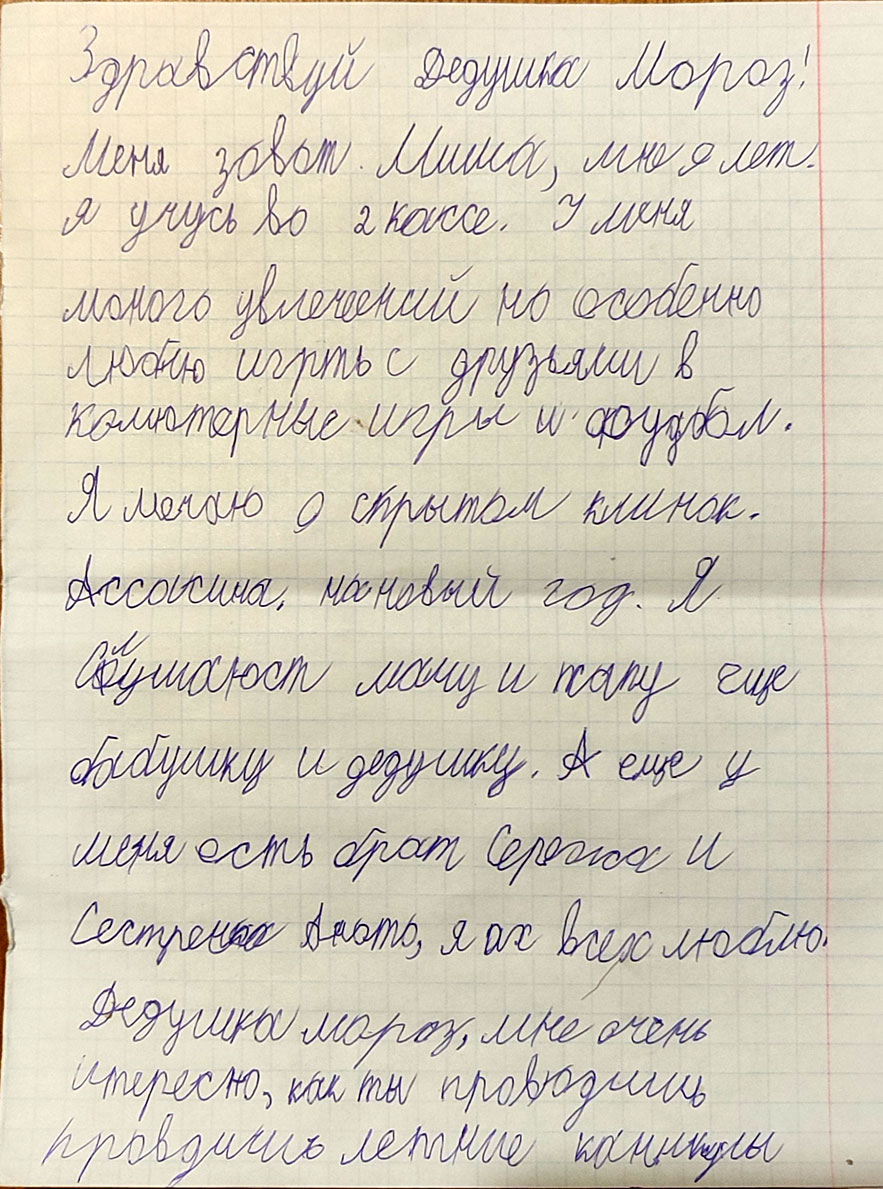 Здравствуй Дедушка Мороз!
Меня зовот Миша, мне 9 лет.
я учусь во 2 кассе. У меня
моного увлечений но особенно
люблю игрть с друзьями в
колютерные игры и фудбол.
Я мечаю о скрытом клинок.
Ассасина, на новый год. Я
Слушаюст маму и папу еще
бабушку и дедушку. А еще у
меня есть брат Сережа и
Сестренка, я их всех люблю.
Дедушка мороз, мне очень
итересно, как ты проводишь
правдишь летние каникулы